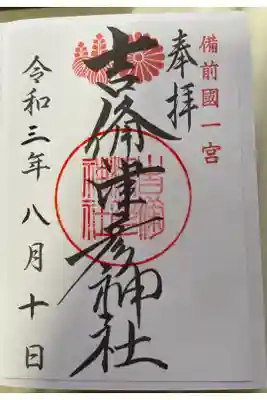 備前國一宮
奉拝
吉備津彦神社
吉備津彦神社
令和三年八月十日